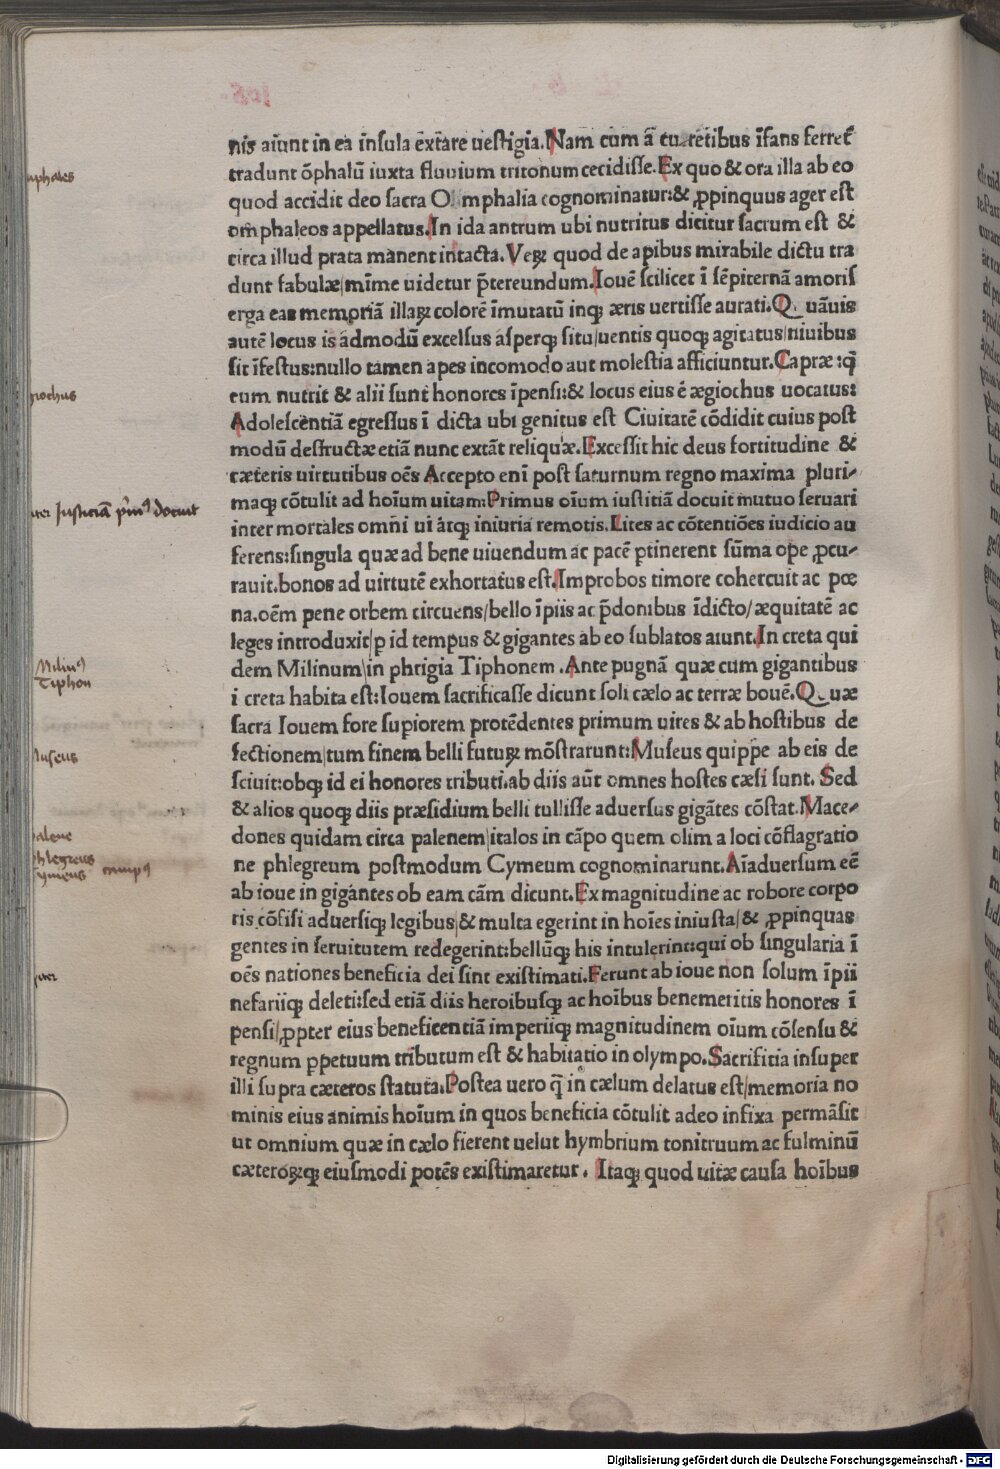 nis aiunt in ea insula extare uestigia. Nam cum ā curetibus īfans ferret̄
tradunt ōphalū iuxta fluuium tritonum cecidisse. Ex quo & ora illa ab eo
quod accidit deo sacra Omphalia cognominatur: & ꝓpinquus ager est
omphaleos appellatus. In ida antrum ubi nutritus dicitur sacrum est &
circa illud prata manent intacta. Veꝝ quod de apibus mirabile dictu tra
dunt fabulæ/mīme uidetur p̄tereundum. Iouē scilicet ī sēpiternā amoris
erga eas memoriā illaꝝ colorē īmutatū inqꝫ æris uertisse aurati. Quāuis
autē locus is admodū excelsus asperqꝫ situ/uentis quoqꝫ agitatus/niuibus
sit īfestus: nullo tamen apes incomodo aut molestia afficiuntur. Capræ: q̄
eum nutrit & alii sunt honores īpensi: & locus eius ē ægiochus uocatus:
Adolescentiā egressus ī dicta ubi genitus est Ciuitatē cōdidit cuius post
modū destructæ etiā nunc extāt reliquæ. Excessit hic deus fortitudine &
cæteris uirtutibus oēs Accepto enī post saturnum regno maxima pluri-
maqꝫ cōtulit ad hoīum uitam: Primus oīum iustitiā docuit mutuo seruari
inter mortales omni ui atqꝫ iniuria remotis. Lites ac cōtentiōes iudicio au
ferens: singula quæ ad bene uiuendum ac pacē ꝑtinerent sūma ope ꝓcu-
rauit. bonos ad uirtutē exhortatus est. Improbos timore cohercuit ac pœ
na. oēm pene orbem circuens/bello īpiis ac p̄donibus īdicto/æquitatē ac
leges introduxit/p id tempus & gigantes ab eo sublatos aiunt. In creta qui
dem Milinum/in phrigia Tiphonem. Ante pugnā quæ cum gigantibus
i creta habita est: Iouem sacrificasse dicunt soli cælo ac terræ bouē. Quæ
sacra Iouem fore supiorem protēdentes primum uires & ab hostibus de
fectionem/tum finem belli futuꝝ mōstrarunt: Museus quippe ab eis de
sciuit: obqꝫ id ei honores tributi. ab diis aūt omnes hostes cæsi sunt. Sed
& alios quoqꝫ diis præsidium belli tulisse aduersus gigātes cōstat. Mace-
dones quidam circa palenem/italos in cāpo quem olim a loci cōflagratio
ne phlegreum postmodum Cymeum cognominarunt. Aīaduersum eē
ab ioue in gigantes ob eam cām dicunt. Ex magnitudine ac robore corpo
ris cōfisi aduersiqꝫ legibus/& multa egerint in hoīes iniusta/& ꝓpinquas
gentes in seruitutem redegerint: bellūqꝫ his intulerint: qui ob singularia ī
oēs nationes beneficia dei sint existimati. Ferunt ab ioue non solum īpii
nefariiqꝫ deleti: sed etiā diis heroibusqꝫ ac hoībus benemeritis honores ī
pensi/ꝓpter eius beneficentiā imperiiqꝫ magnitudinem oīum cōsensu &
regnum ꝑpetuum tributum est & habitatio in olympo. Sacrifitia insuper
illi supra cæteros statuta. Postea uero q̄ in cælum delatus est/memoria no
minis eius animis hoīum in quos beneficia cōtulit adeo infixa permāsit
ut omnium quæ in cælo fierent uelut hymbrium tonitruum ac fulminū
cæteroꝝqꝫ eiusmodi potēs existimaretur. Itaqꝫ quod uitæ causa hoībus
Justiciā prim⁹ docuit
Milin⁹
Tiphon
Museus
phlegreus
cymeus camp⁹
Digitalisierung gefördert durch die Deutsche Forschungsgemeinschaft - DFG